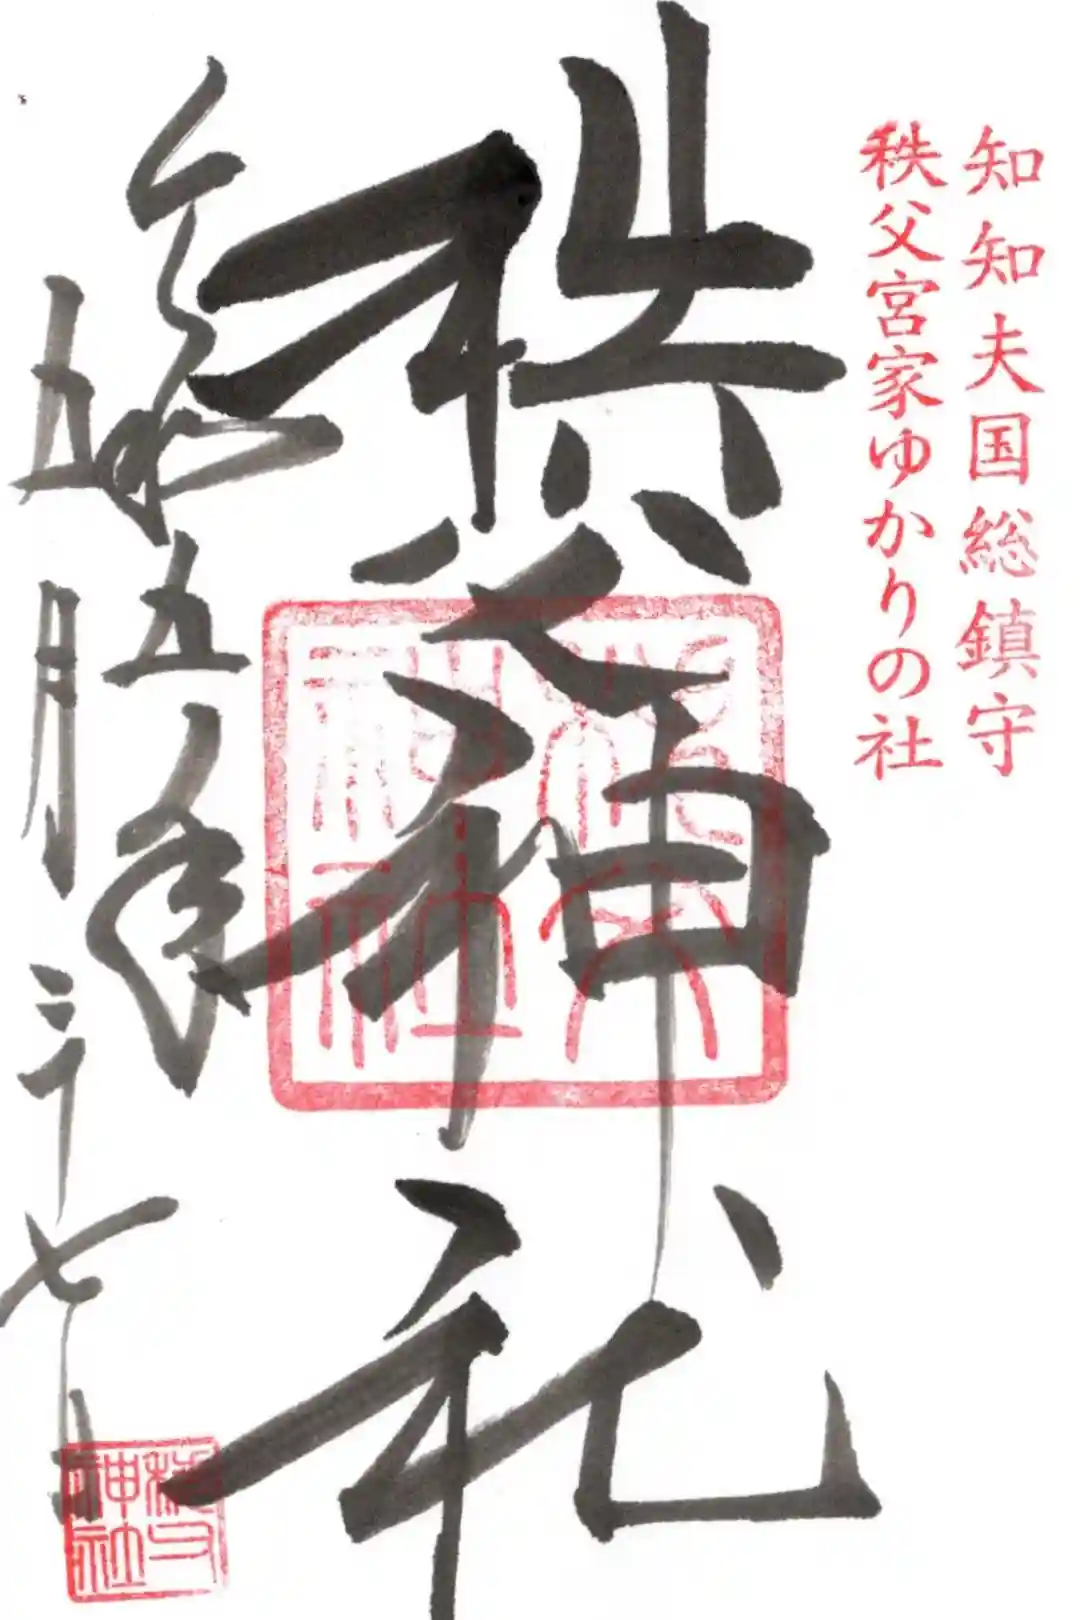 知知夫国総鎮守
秩父宮家ゆかりの社
秩父神社
令和五年
五月二十七日
秩父神社
秩父神社